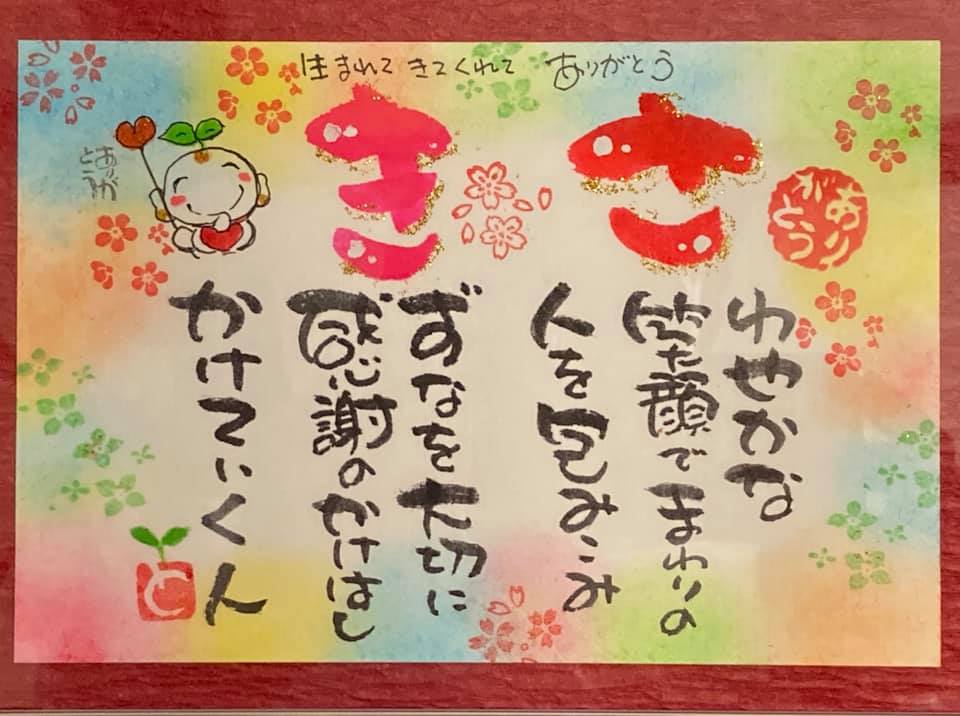 生まれて きてくれて ありがとう
さ
わやかな
笑た顔でまわりの
人を包みこみ
き
ずなを大切に
感謝のかけはし
かけていく人
ありがとう
ありがとう